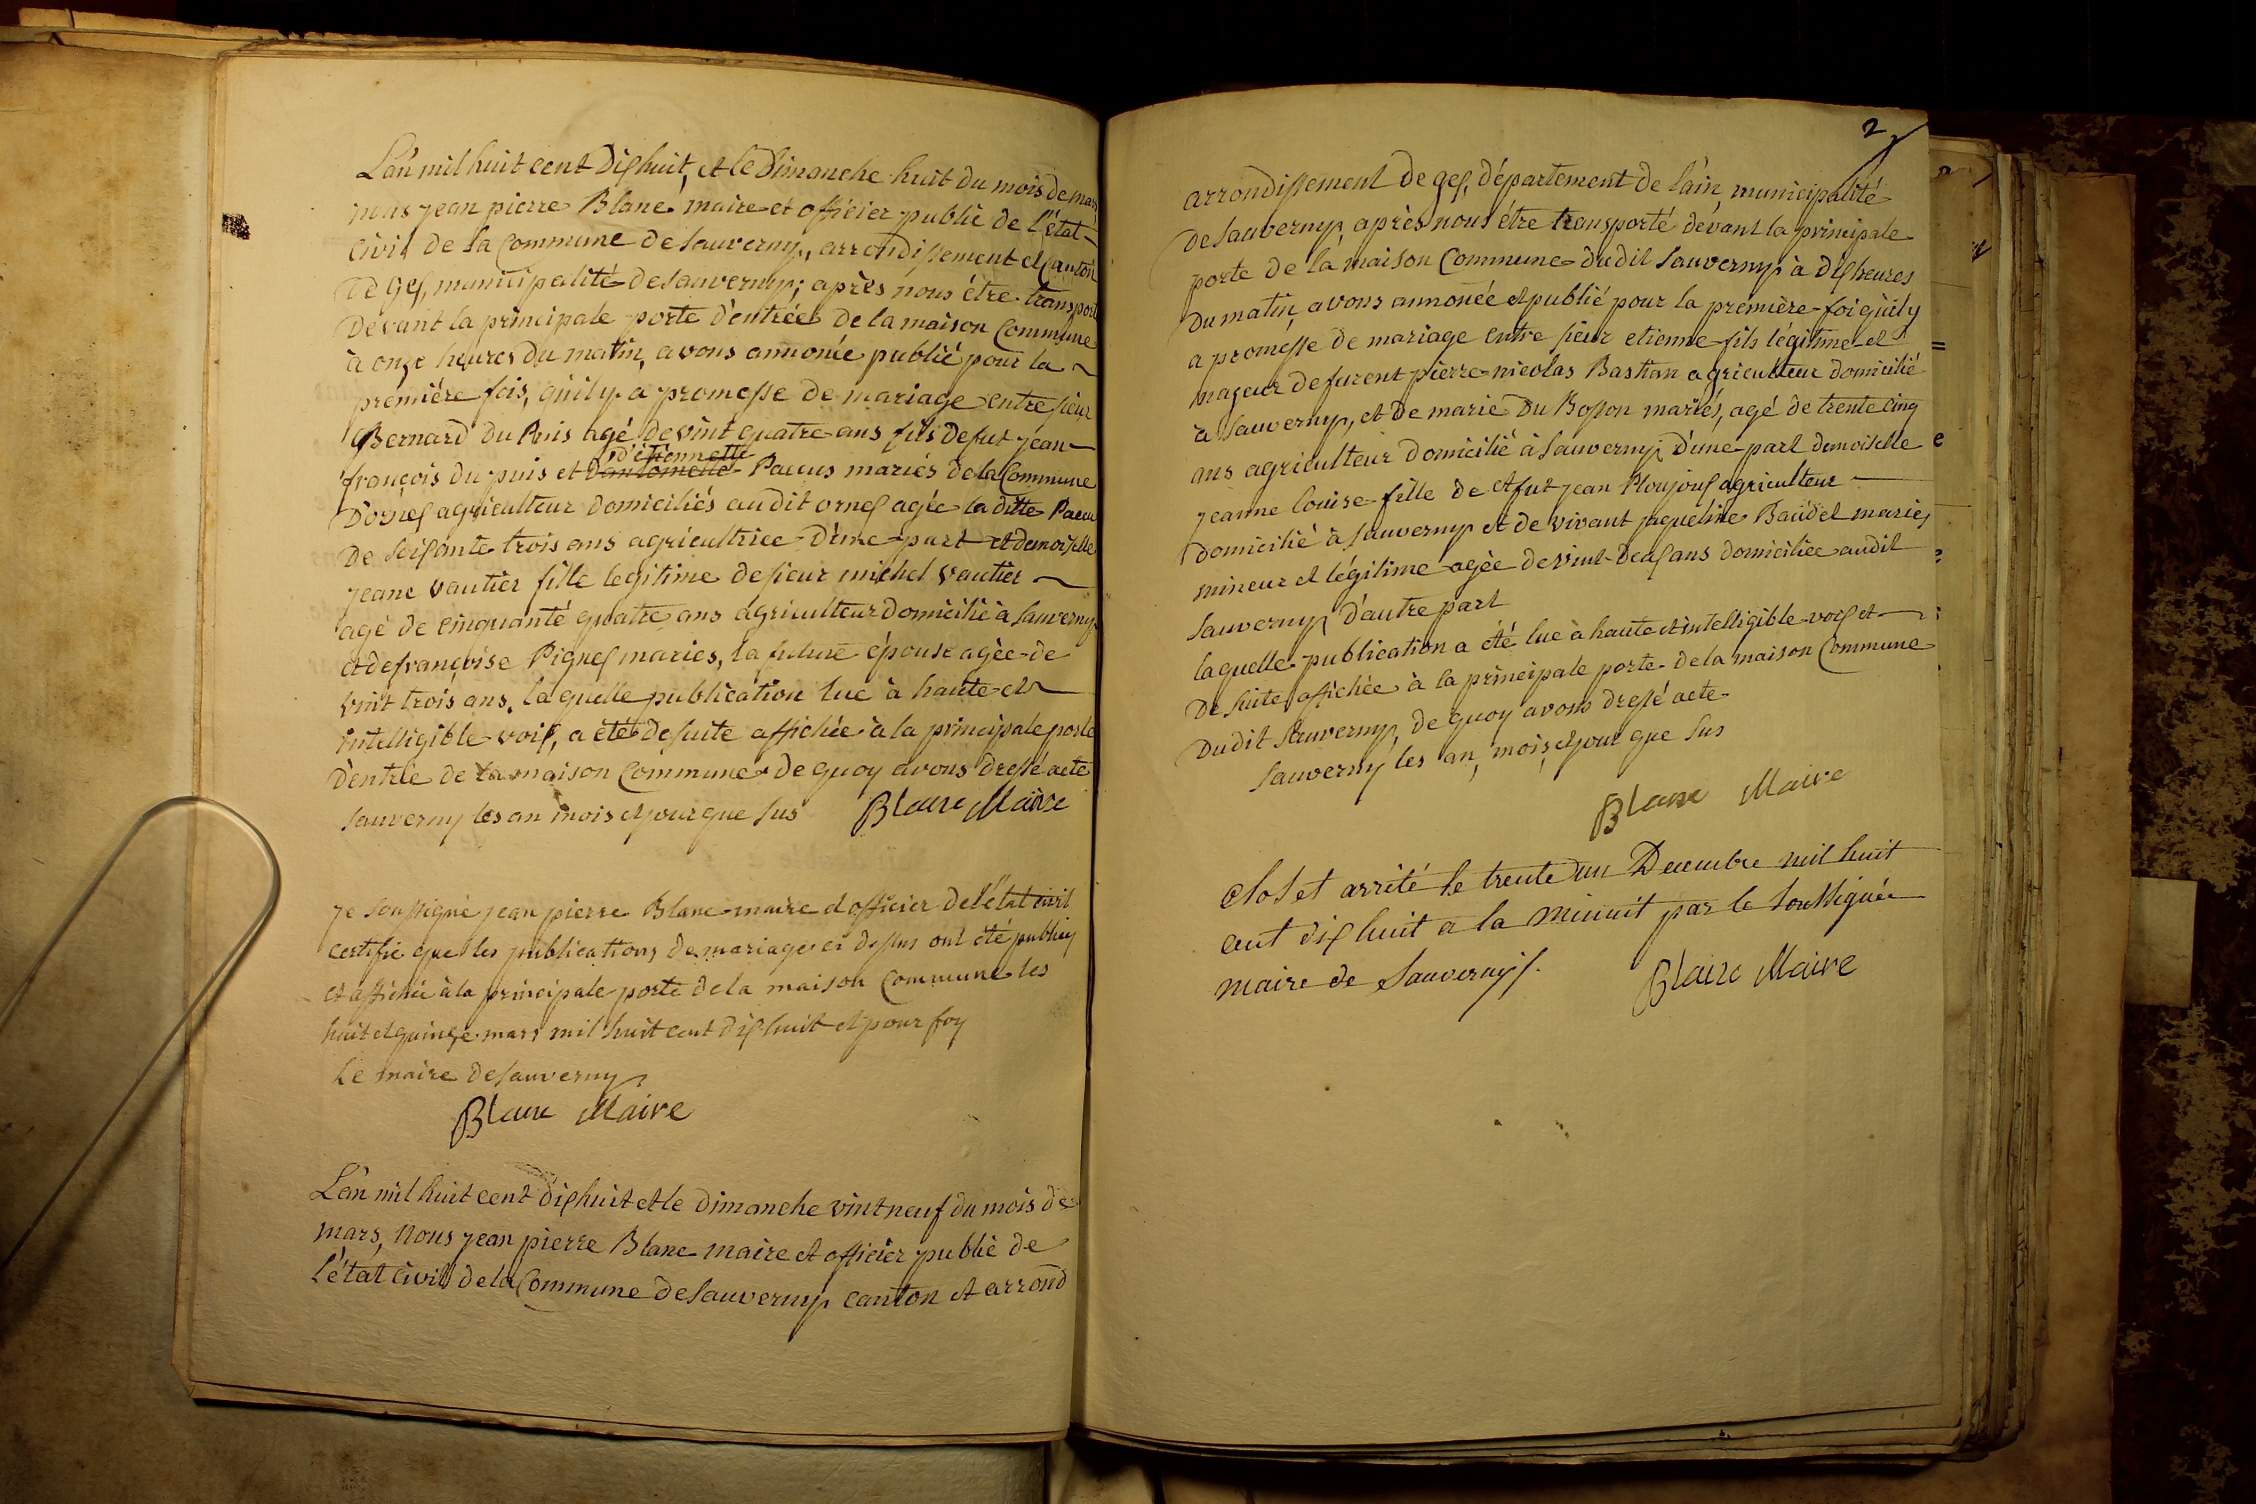 L'an mil huit cent dixhuit, et le Dimanche huit du mois de mars
nous jean pierre Blanc maire et officier public de l'état
civil de la Commune de Sauverny, arrondissement et Canton
de Gex, municipalité de Sauverny; après nous être transporté
Devant la principale porte d'entrée de la maison Commune
à onze heures Du matin, avons annonée publié pour la
première fois, qu'il y a promesse de mariage entre sieur
Bernard Du Puis agé de vint quatre ans fils de fut jean
d'étiennette
françois du puis et d'antoinette Paccus mariés de la Commune
D'ornex agriculteur domiciliés audit ornex agée la ditte Paccu
De soixante trois ans agricultrice D'une part et demoiselle
jeane vautier fille legitime de sieur michel vautier
agé de cinquante quatre ans agriculteur domicilié à Sauverny
et de françoise Pignex mariés, la future épouse agée de
vint trois ans. la quelle publication lue à haute et
intelligible voix, a été de suite affichée à la principale porte
D'entrée de la maison Commune de quoy avons dressé acte
Sauverny les an mois et jour que sus Blanc Maire
je soussigné jean pierre Blanc maire et officier de l'état civil
certifie que les publications de mariage ci dessus ont été publiés
et affichée à la principale porte de la maison Commune les
huit et quinze mars mil huit cent dixhuit et pour foy
Le maire de Sauverny
Blanc Maire
L'an mil huit cent dixhuit et le dimanche vintneuf du mois de
mars, nous jean pierre Blanc maire et officier public de
l'état civil de la Commune de Sauverny canton et arrond
2
arrondissement de gex, département de l'ain, municipalité
de Sauverny, après nous être transporté devant la principale
porte de la maison Commune dudit Sauverny à dix heures
Du matin, avons annonée et publié pour la première foi qu'il y
a promesse de mariage entre sieur etienne fils légitime et
majeur de furent pierre nicolas Bastian agriculteur domicilié
à Sauverny, et de marie Du Bosson mariés, agé de trente cinq
ans agriculteur domicilié à Sauverny, D'une part demoiselle
jeanne louise fille de et fut jean agriculteur
domicilié à Sauverny et de vivant jaqueline Baudet mariés
mineur et légitime agée de vint deux ans domiciliée audit
Sauverny, d'autre part
laquelle publication a été lue à haute et intelligible voix et
De suite affichée à la principale porte de la maison Commune
Dudit Sauverny, de quoy avons dressé acte
Sauverny les an, mois, et jour que sus
Blanc Maire
Clos et arrité le trente un Decembre mil huit
cent dix huit a la minuit par le soussignée
maire de Sauverny Blanc Maire